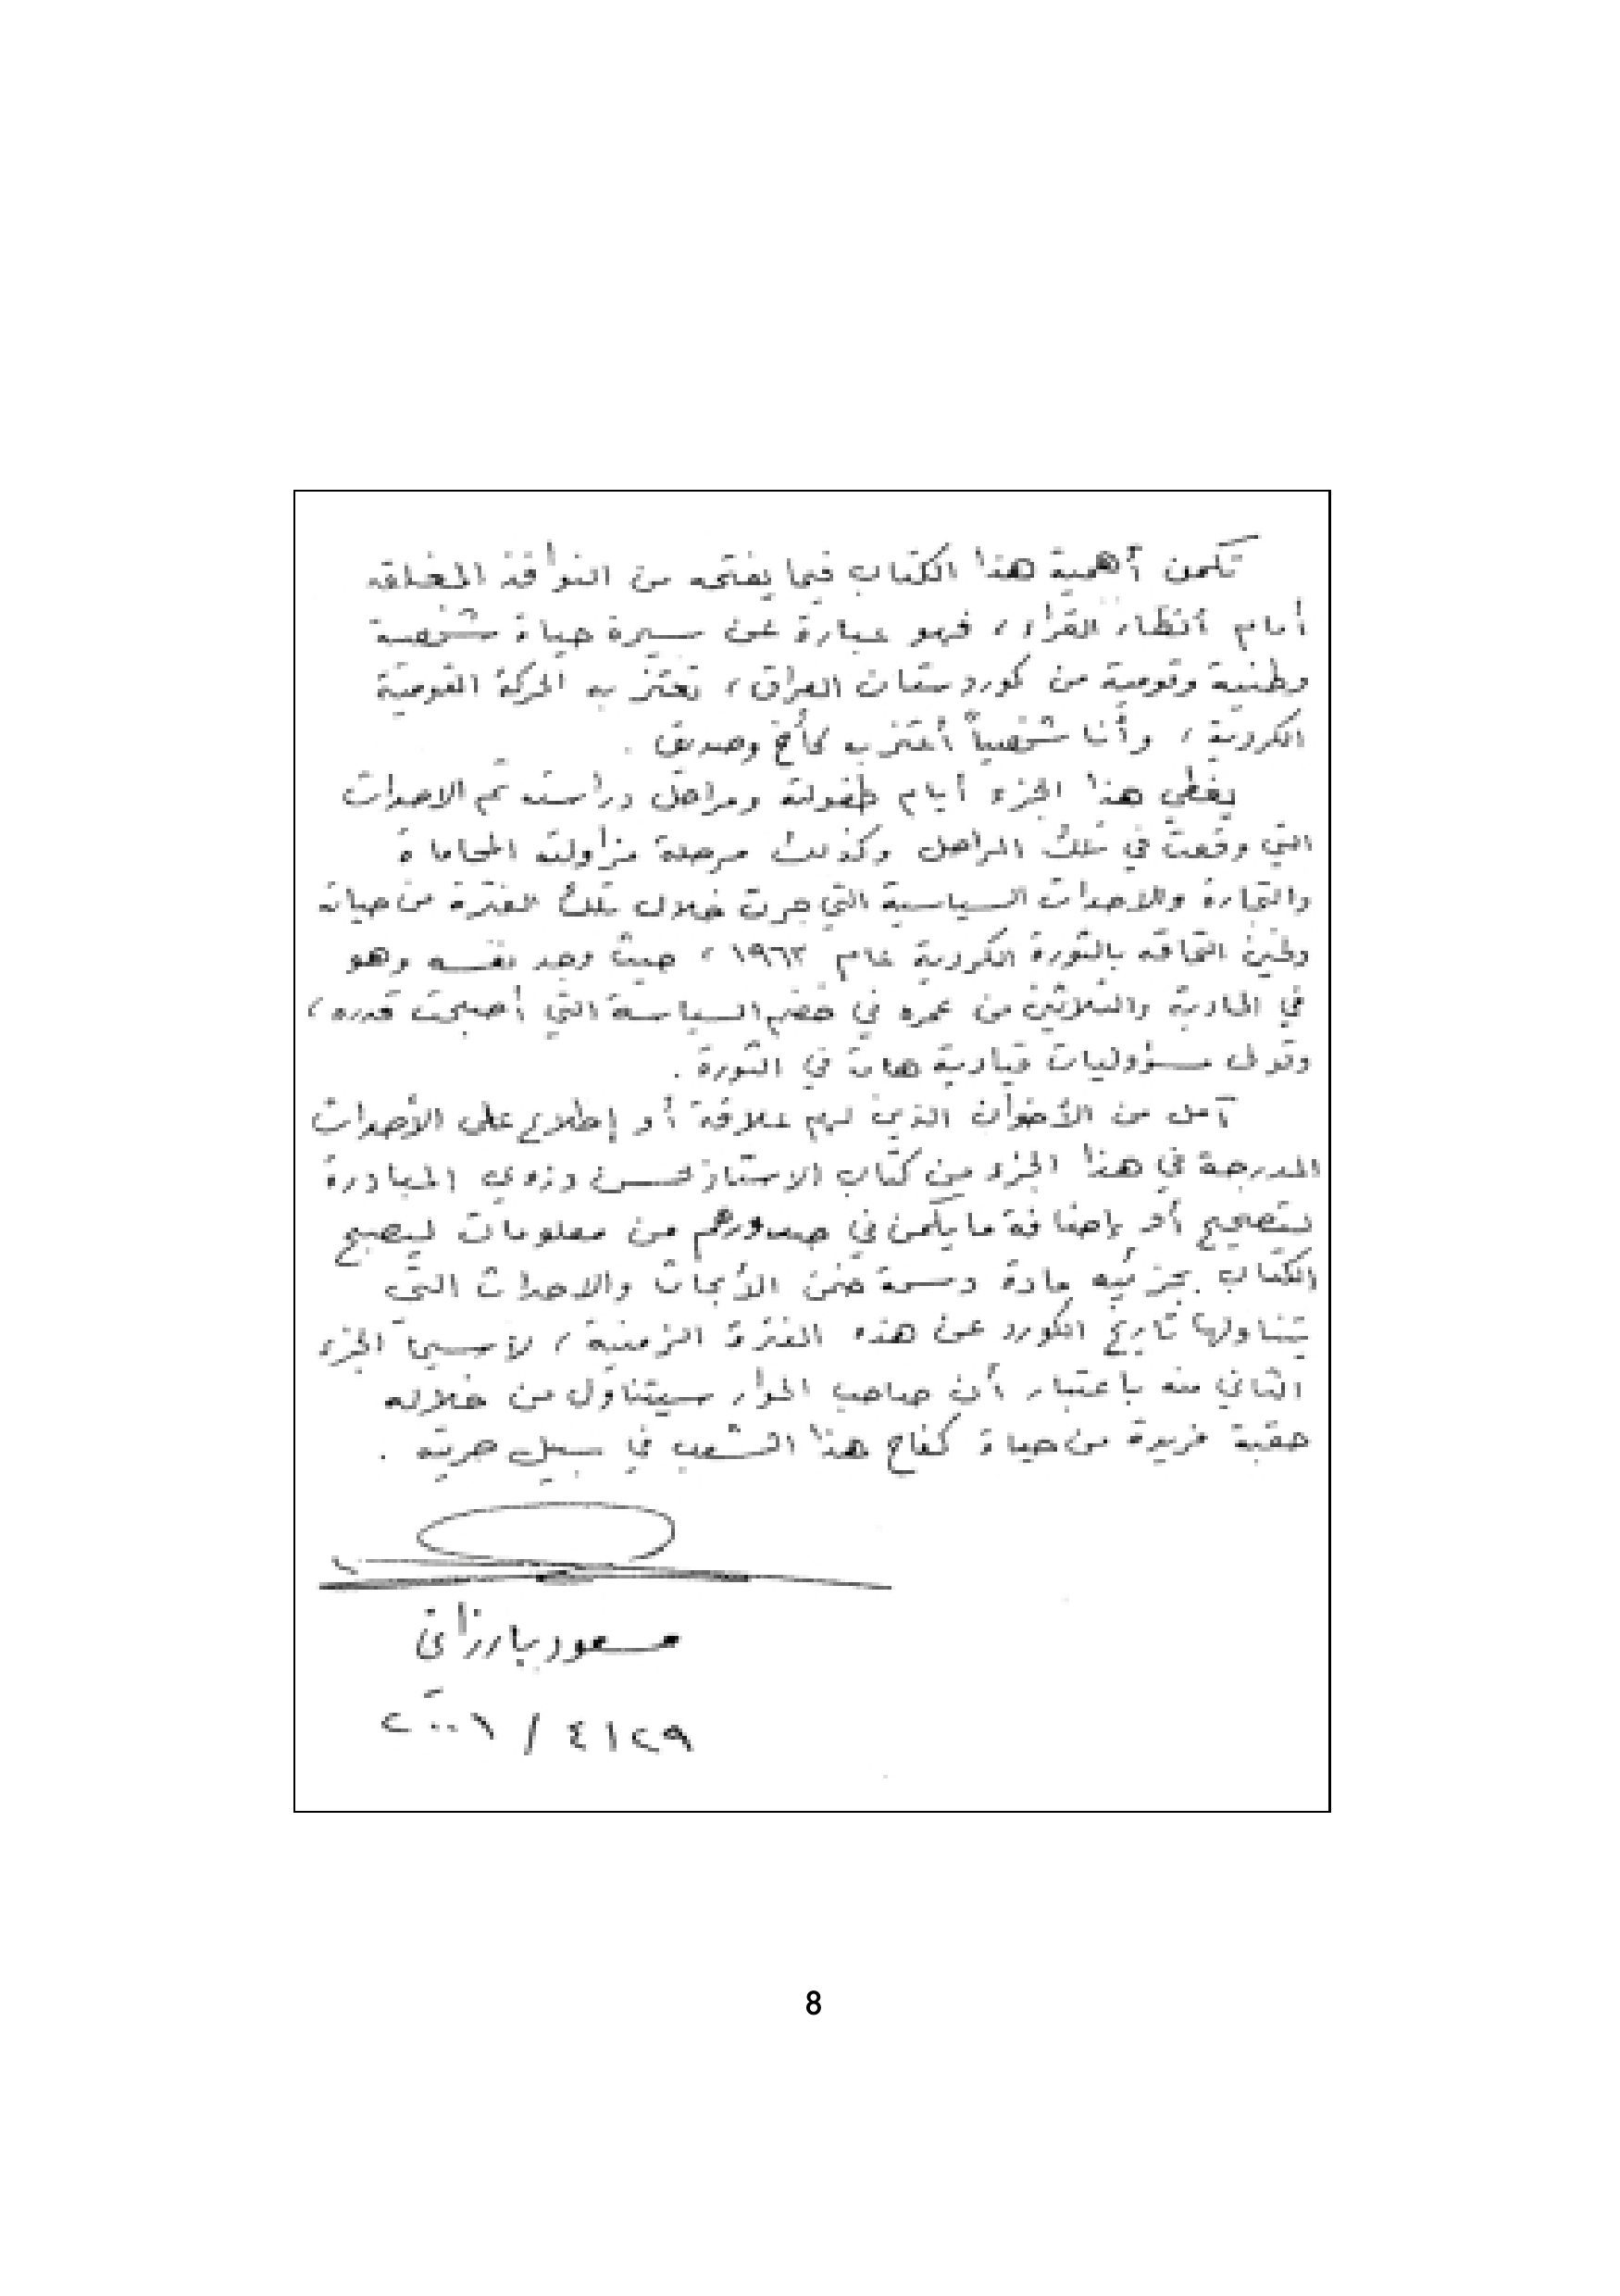 تكمن أهمية هذا الكتاب فيما يفتحه من النوافذ المغلقة
أمام أنظار القراء، فهو عبارة عن سيرة حياة شخصية
وطنية وقومية من كوردستان العراق، تعتز به الحركة القومية
الكردية، وأنا شخصياً أعتز به كأخ وصديق .
يغطي هذا الجزء أيام طفولته ومراحل دراسته ثم الاحداث
التي وقعت في تلك المراحل وكذلك مرحلة مزاولته المحاماة
والتجارة والاحداث السياسية التي جرت خلال تلك الفترة من حياته
ولحين التحاقه بالثورة الكردية عام ١٩٦٣، حيث وجد نفسه وهو
في الحادية والثلاثين من عمره في خضم السياسة التي أصبحت قدره،
وتولى مسؤوليات قيادية هامة في الثورة .
آمل من الأخوان الذين لهم علاقة أو إطلاع على الأحداث
المدرجة في هذا الجزء من كتاب الاستاذ محسن دزه يي المبادرة
لتصحيح أو بإضافة ما يكمن في صدورهم من معلومات ليصبح
الكتاب بجزئيه مادة دسمة ضمن الأبحاث والاحداث التي
يتناولها تاريخ الكورد عن هذه الفترة الزمنية، لاسيما الجزء
الثاني منه باعتبار أن صاحب الحوار سيتناول من خلاله
حقبة فريدة من حياة كفاح هذا الشعب في سبيل حريته .
مسعود بارزاني
٢٩/٤/٢٠٠١
8